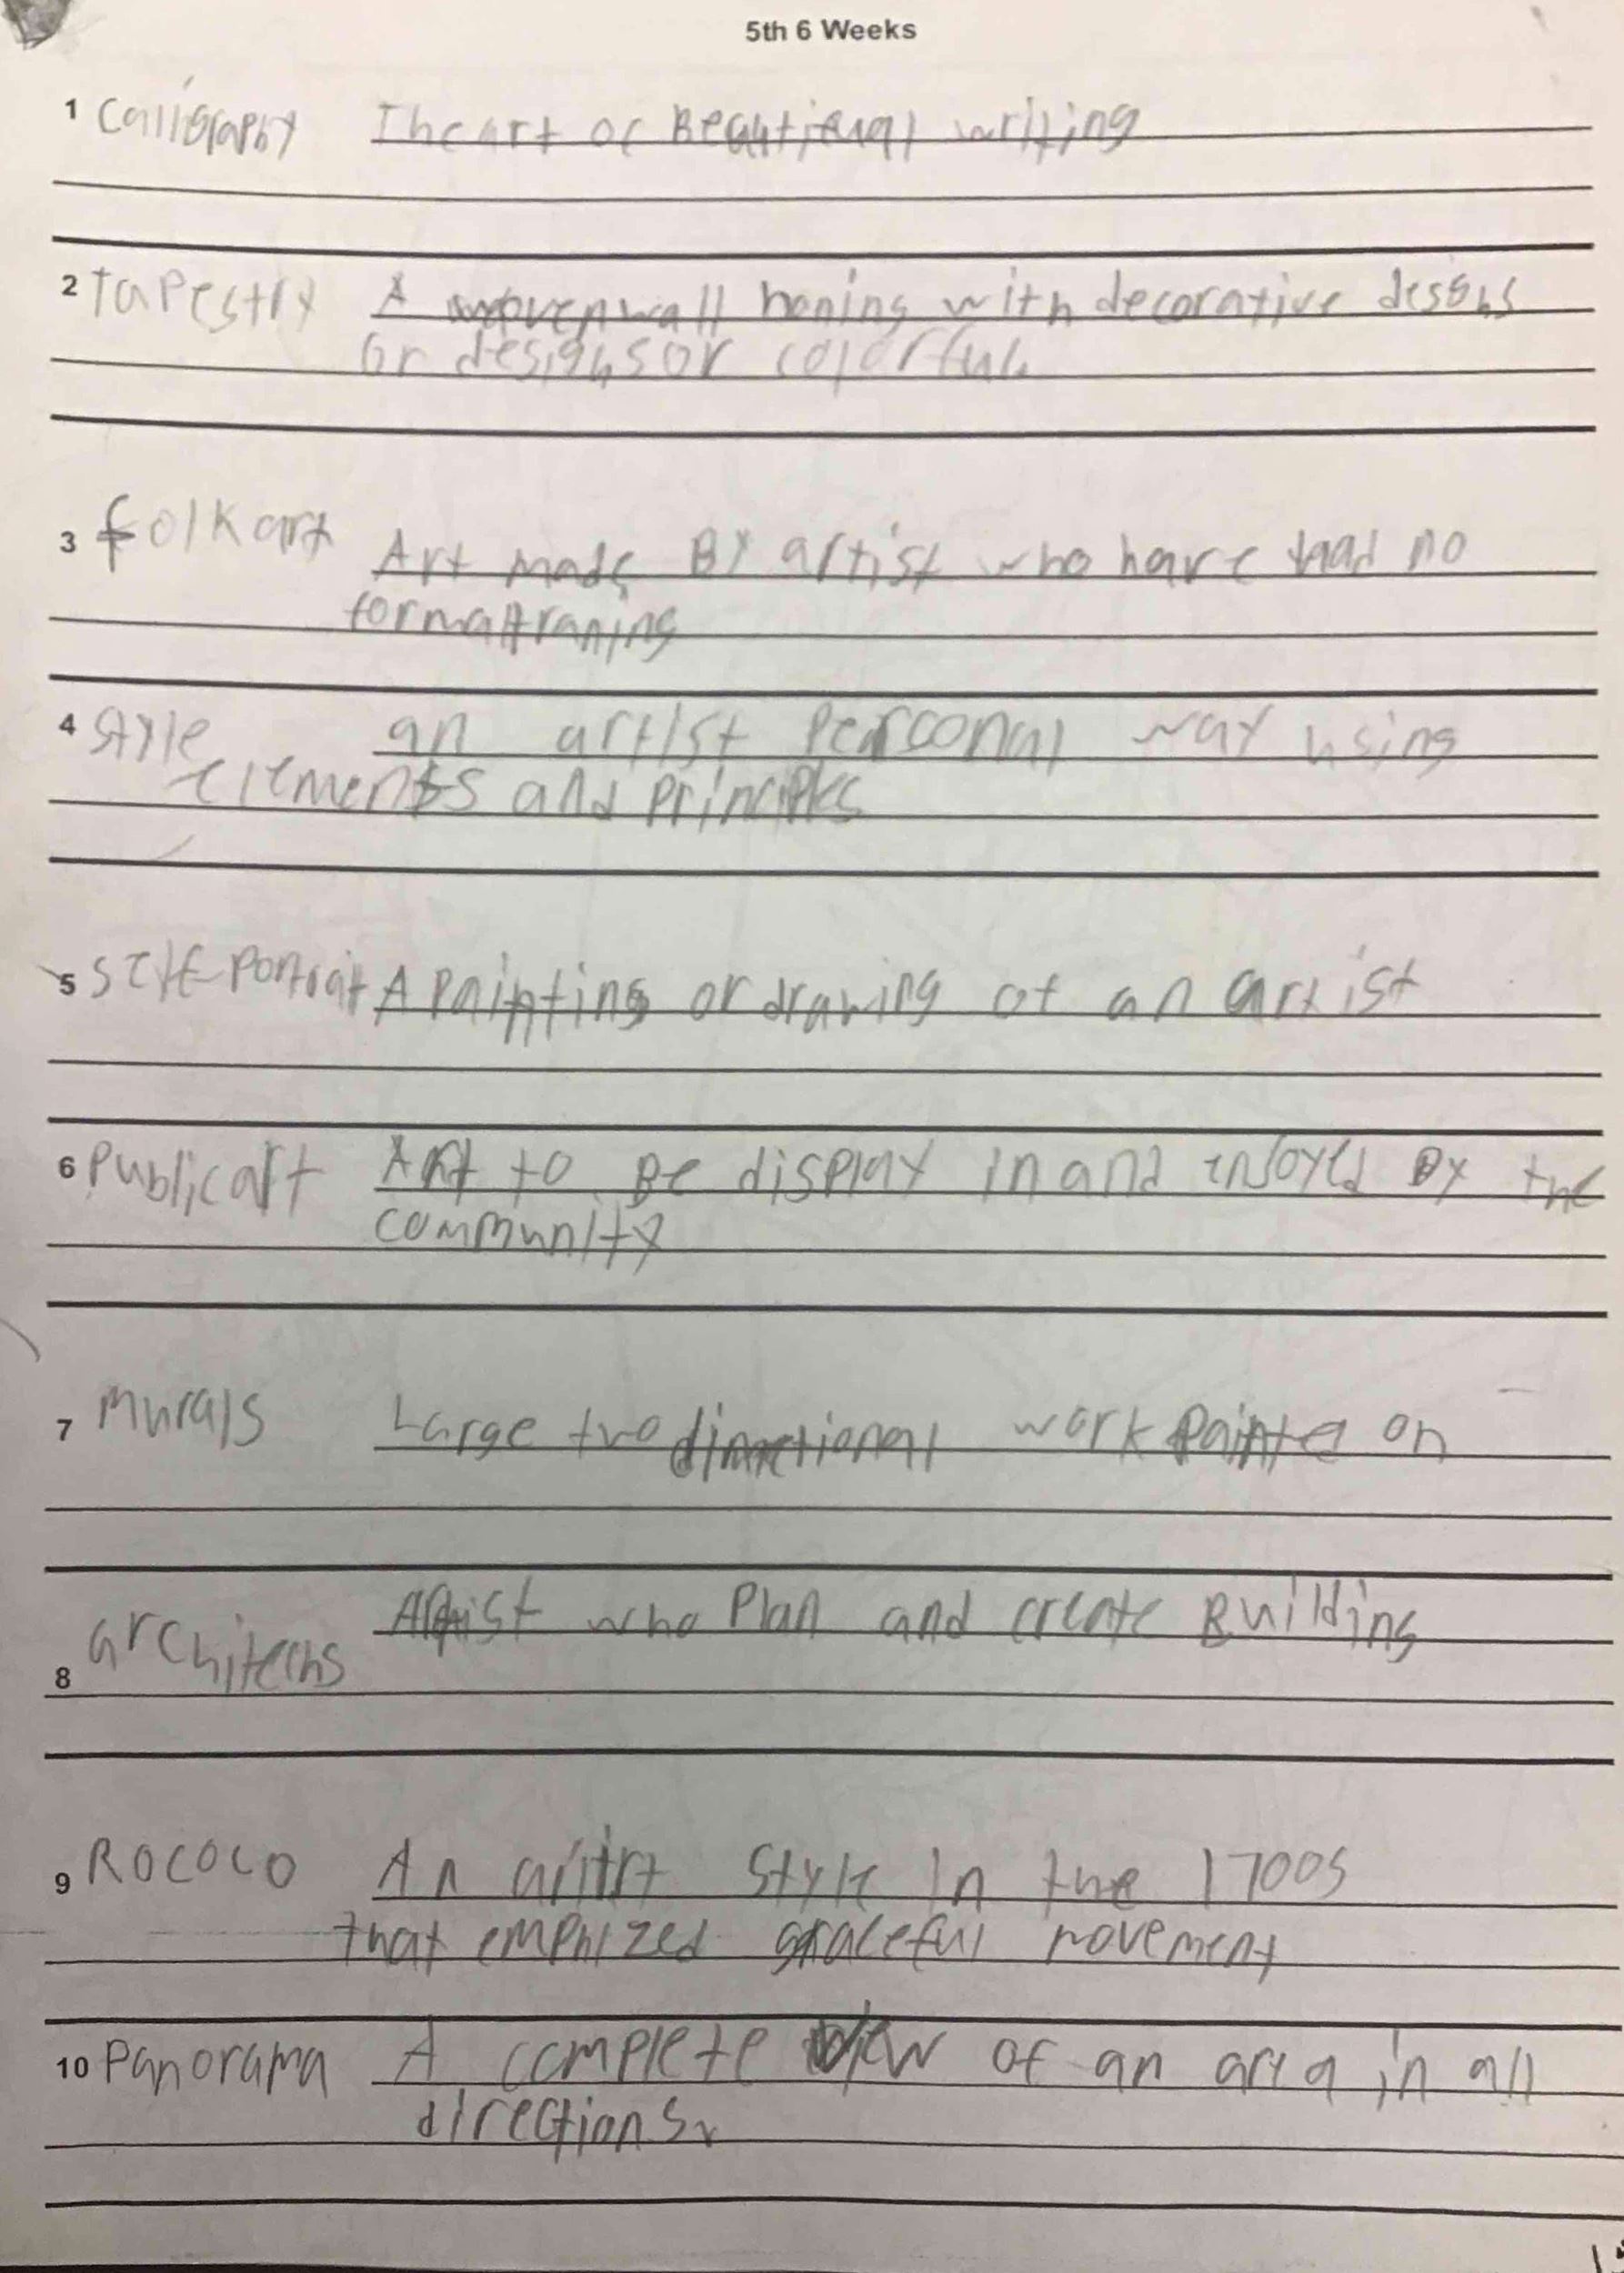 5th 6 Weeks
1 Calligraphy The art of Beautiful writing
2 Tapestry A woven wall honing with decorative
or designs or colorful.
3 folk art Art made By artist who have had no
formal traning
4 Style an artist Personal way using
elements and principles
5 Self Portrait A Painting or drawing of an artist
6 Public art Art to Be display in and enjoyed By the
community
7 Murals Large two work Painted on
8 Artist who Plan and create Building
9 ROCOCO An style in the 1700s
that emphized graceful movement
10 Panorama A complete view of an area in all
directions.